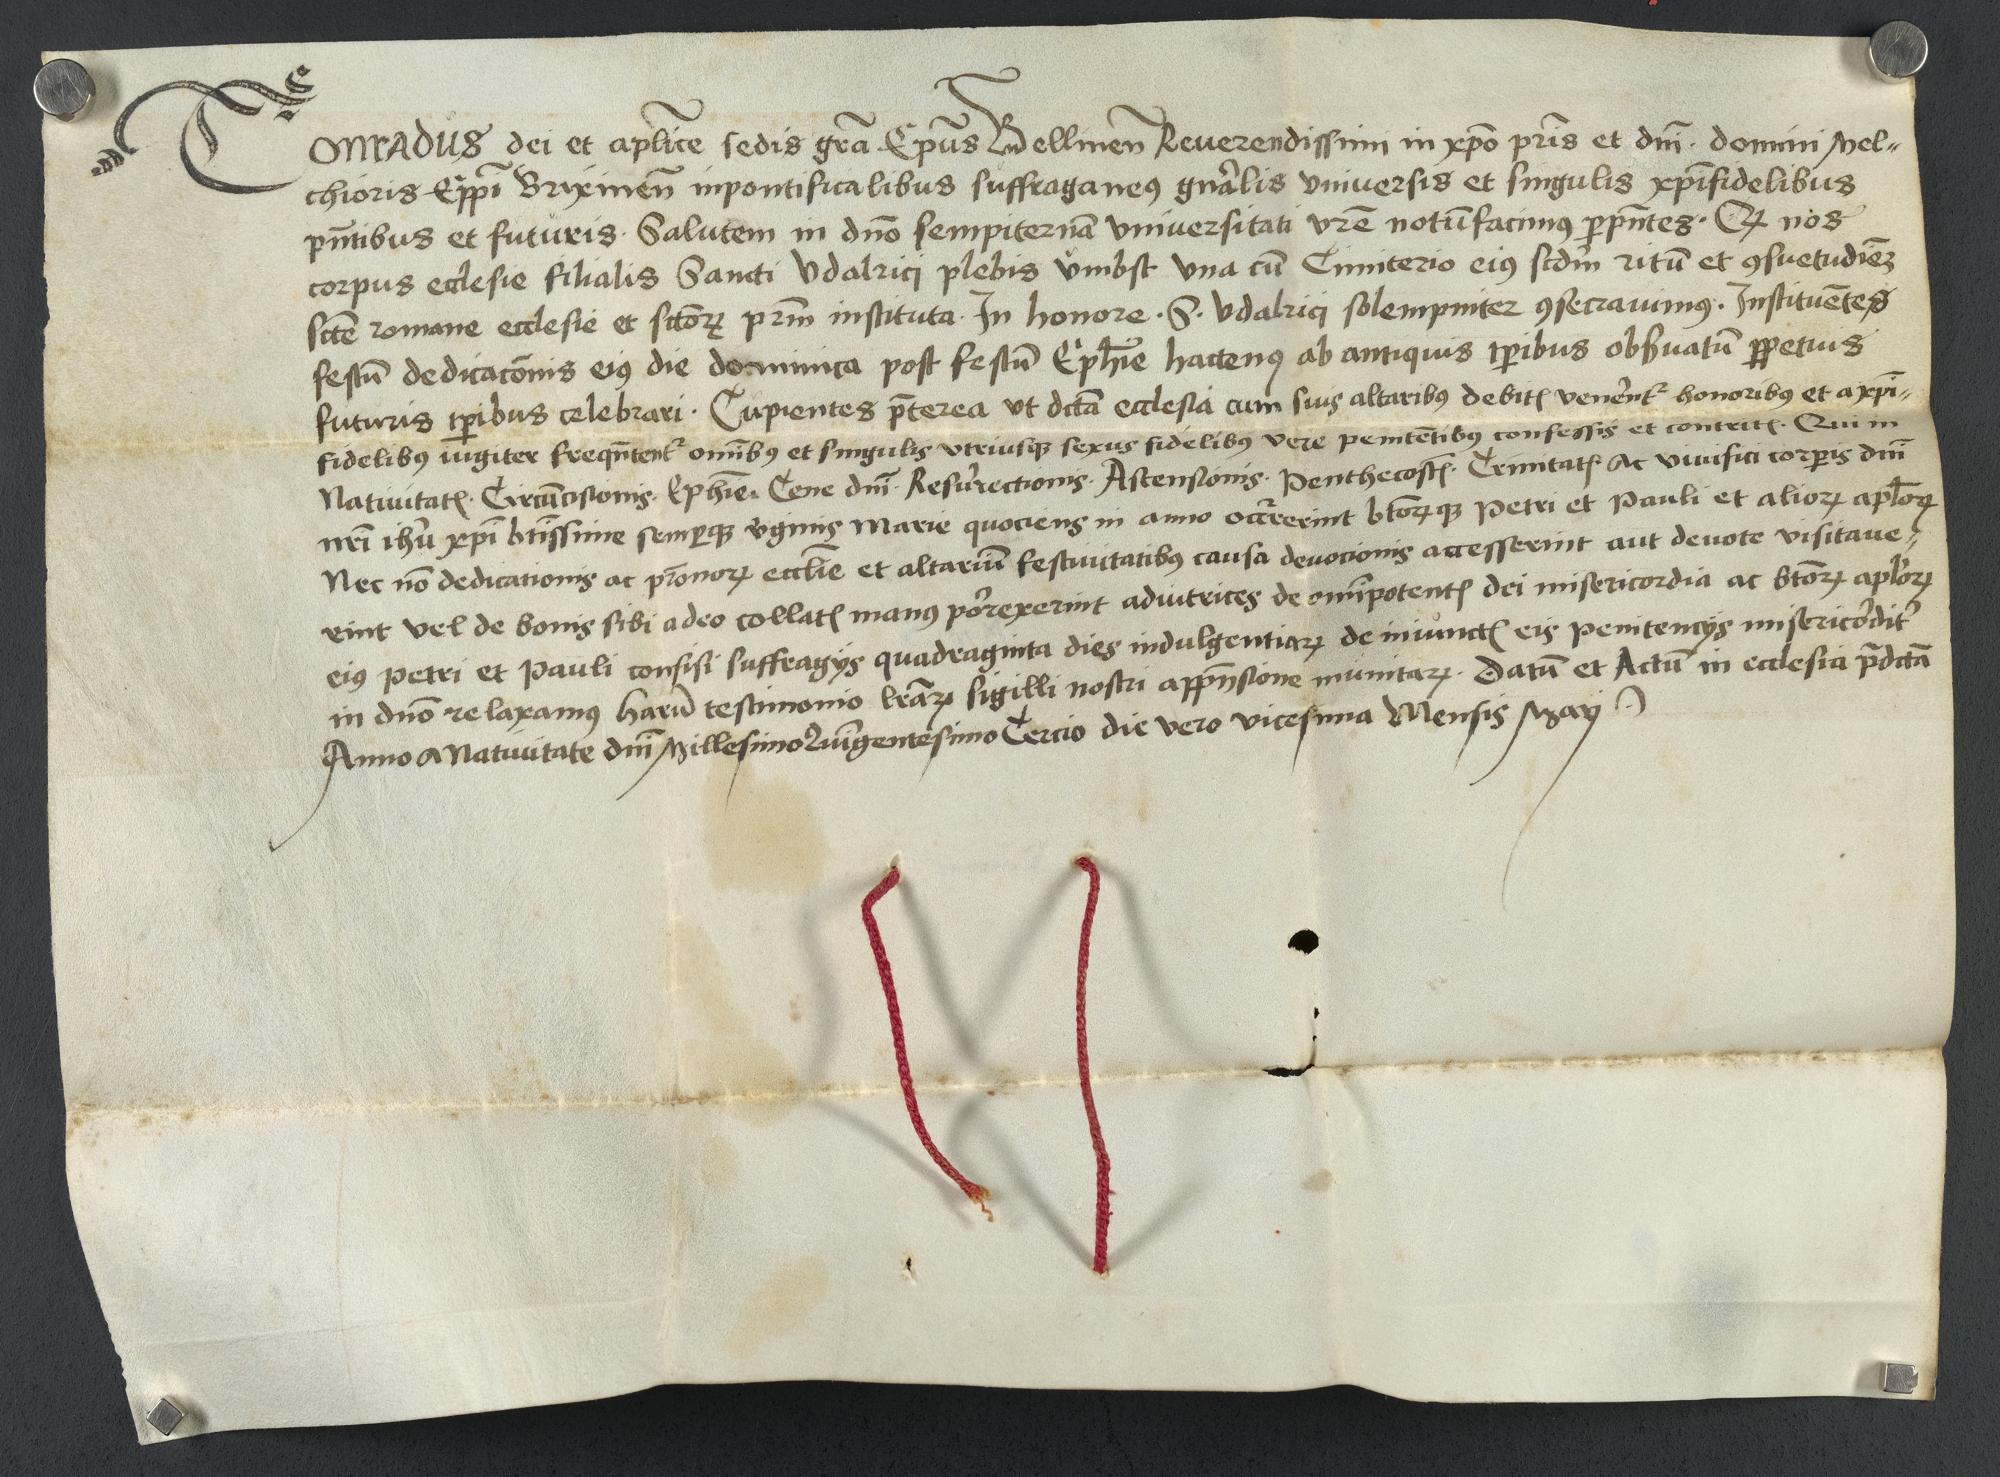 Conradus dei et aplice sedis gra Epus Bellinen Reverendissimi in xpo pris et dni. domini Mel-
chioris Eppi Brixinen in pontificalibus suffraganeus gnalis vniversis et singulis xpifidelibus
pntibus et futuris. Salutem in dno sempiternam vniversitati vre notum facimus per pntes. Quod nos
corpus ecclesie filialis Sancti Vdalrici plebis Vmbst vna cu Cimiterio eius scdm ritu et consuetudiem
scte romane ecclesie et sctorum prm instituta. In honore. S. Vdalrici solempniter consecravimus. Instituetes
festu dedicacionis eius die dominica post festu Ephie hactenus ab antiquis tpibus observatu perpetuis
futuris tpibus celebrari. Cupientes preterea vt dcta ecclesia cum suis altaribus debitis venerent honoribus et a xpi-
fidelibus iugiter frequentent omibus et singulis vtriusque sexus fidelibus vere penitetibus confessis et contritis. Qui in
Nativitatis. Circucisionis. Ephie. Cene dni. Resurrectionis. Ascensionis. Penthecostis. Trinitatis. Ac vivifici corporis dni
nri ihu xpi btissime semperque virginis Marie quociens in anno occurrerint btorumque Petri et Pauli et aliorum aplorum
Nec no dedicationis ac pronorum ecclie et altarium festivitatibus causa devocionis accesserint aut devote visitave-
rint vel de bonis sibi a deo collatis manus porrexerint adiutrices de omipotentis dei misericordia ac btorum aplorum
eius Petri et Pauli confisi suffragys quadraginta dies indulgentiarum de iniunctis eis penitencys misericorditer
in dno relaxamus haru testimonio lrarum sigilli nostri appensione munitarum. Datu et Actu in ecclesia predcta
Anno a Nativitate dni Millesimo Quingentesimo Tercio die vero vicesima Mensis May